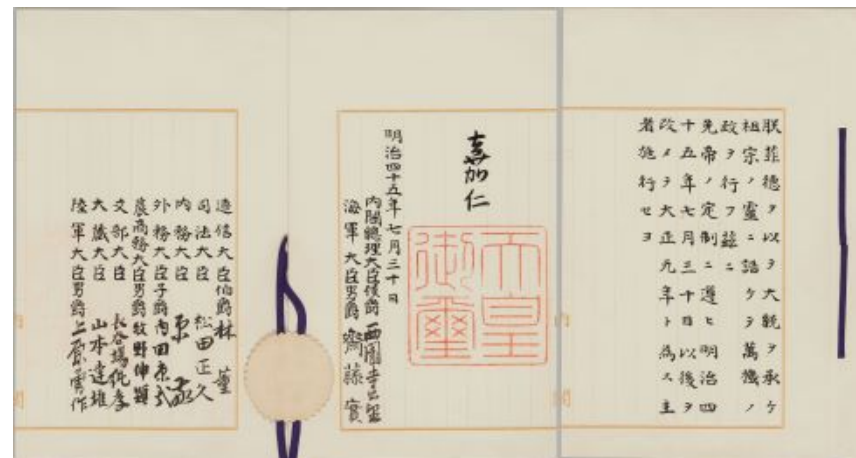 朕菲德ヲ以テ大統ヲ承ケ
祖宗ノ靈ニ誥ケテ萬機ノ
政ヲ行フ茲ニ
先帝ノ定制ニ遵ヒ明治四
十五年七月三十日以後ヲ
改メテ大正元年ト為ス主
者施行セヨ
嘉仁
天皇
御璽
明治四十五年七月三十日
内閣總理大臣侯爵 西園寺公望
海軍大臣男爵 齋藤實
遞信大臣伯爵 林董
司法大臣 松田正久
内務大臣 原敬
外務大臣子爵 内田康哉
農商務大臣男爵 牧野伸顯
文部大臣 長谷場純孝
大藏大臣 山本達雄
陸軍大臣男爵 上原勇作